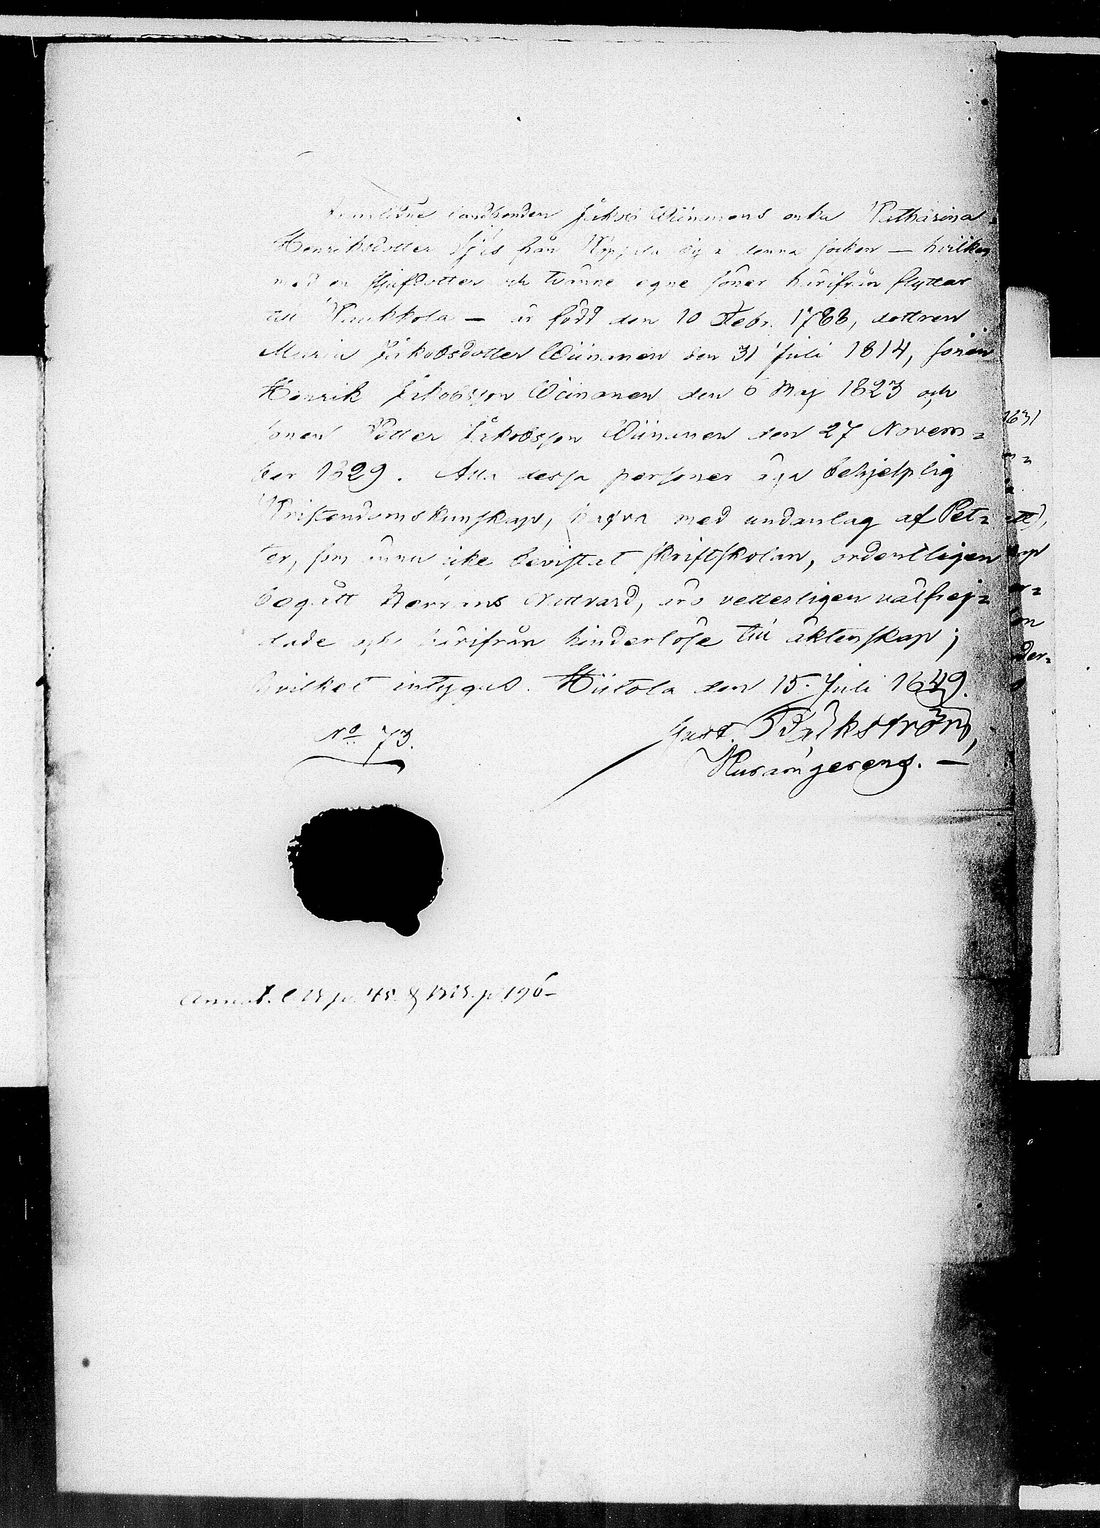 Framlidne landbonden Jakob Wäinänens enka Catharina
Henriksdotter från by i denna socken — hvilken
med en styfdotter och tvänne egne söner härifrån flyttar
till Parikkola — är född den 10 Febr. 1788, dottren
Maria Jakobsdotter Wäinänen den 31 Juli 1814, sonen
Henrik Jakobsson Wäinänen den 6 Maj 1823 och
sonen Petter Jakobsson Wäinänen den 27 Novem=
ber 1829. Alla dessa personer äga behjelplig
Christendomskunskap, hafva med undantag af Pet=
ter, som ännu icke bevistat skriftskolan, ordentligen
begått Herrans Nattvard, äro vetterligen välfrej=
dade och härifrån hinderlöse till äktenskap;
hvilket intygas. Hiitola den 15 Juli 1849.
No 73.
Gust.
Annot. p. 45 & p. 196